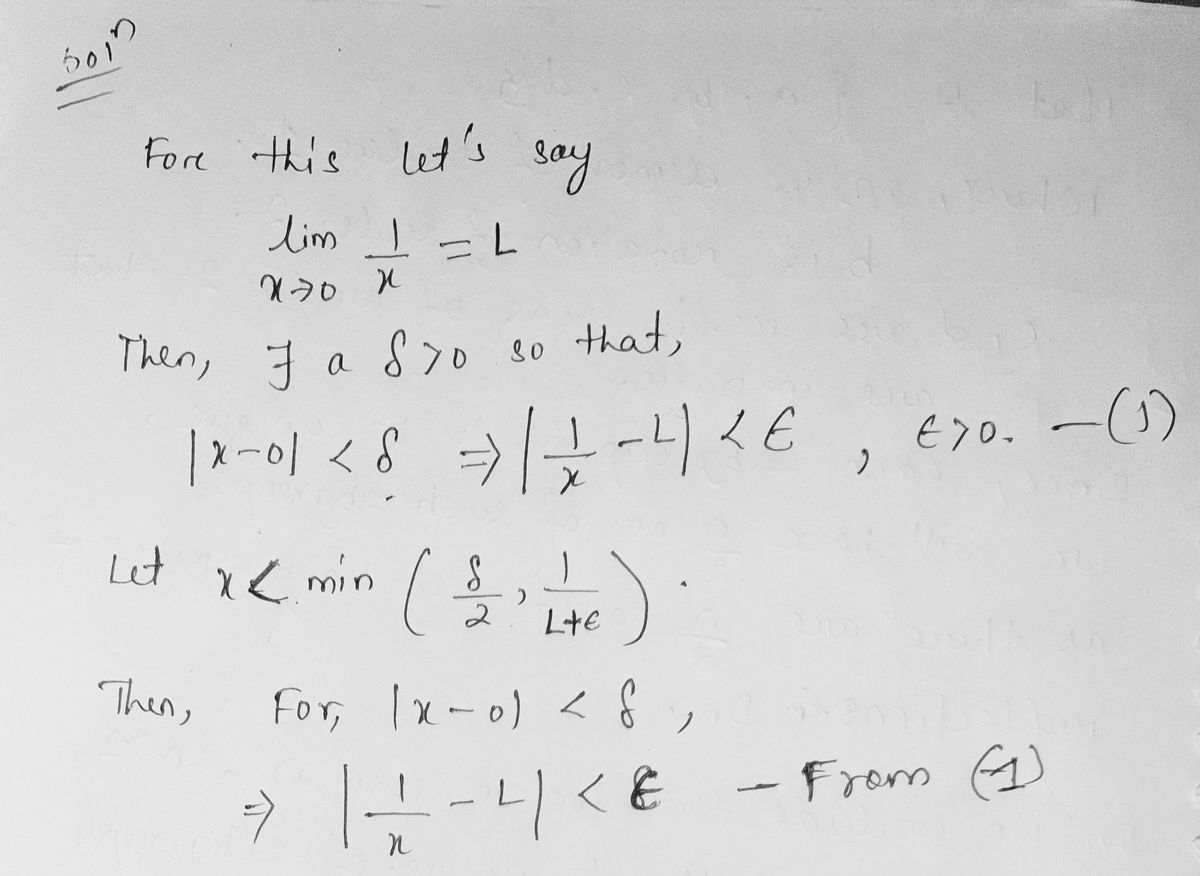 soln
Fore this let's say
lim 1/x = L
x→0
Then, ∃ a δ>0 so that,
|x-0| < δ ⇒ |1/x - L| < ε , ε>0. —(1)
Let x < min (δ/2, 1/L+ε).
Then, For, |x-0| < δ,
⇒ |1/x - L| < ε — From (1)